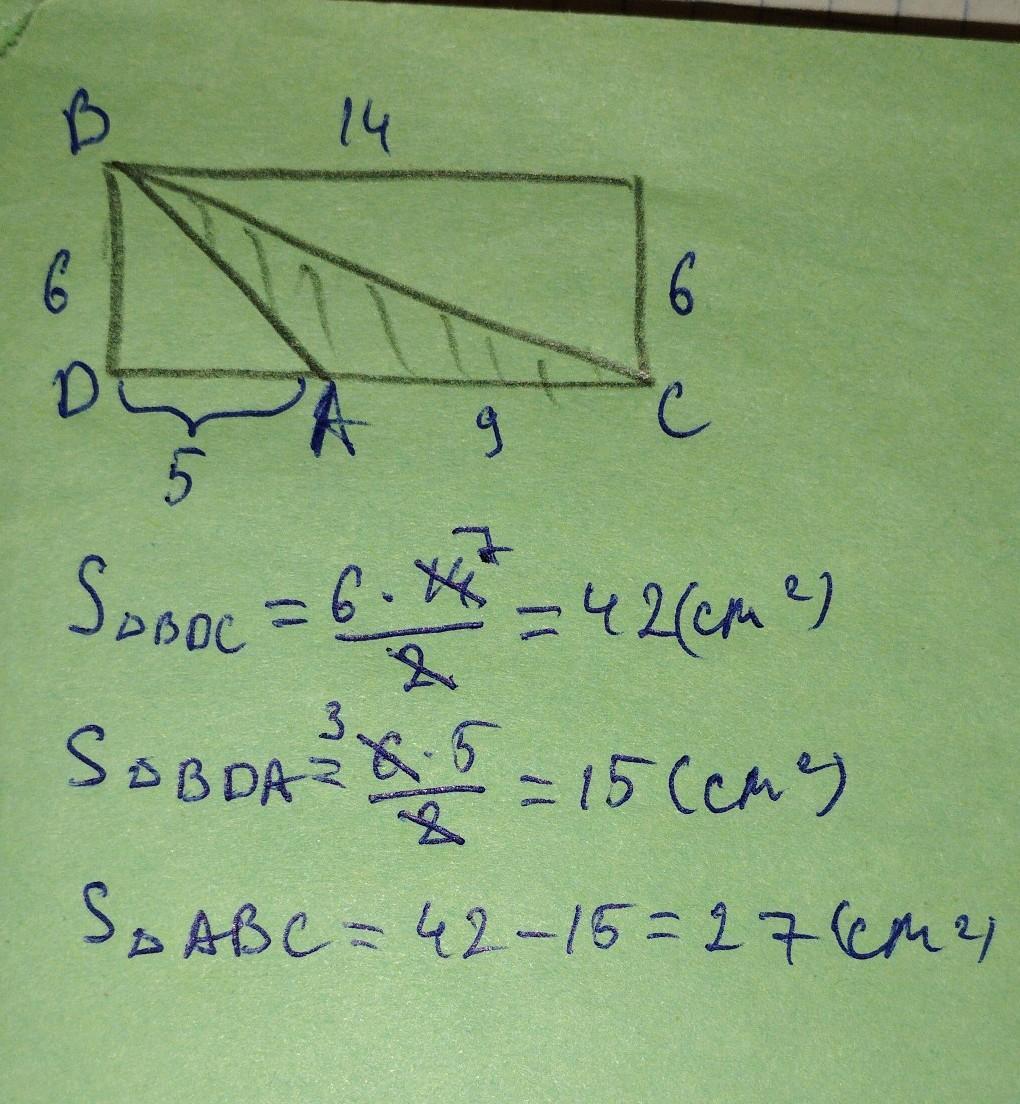 B 14
6 6
D A C
5 9
S△BDC = 6 · 14 7 / 2 = 42 (см²)
S△BDA = 3 6 · 5 / 2 = 15 (см²)
S△ABC = 42 - 15 = 27 (см²)